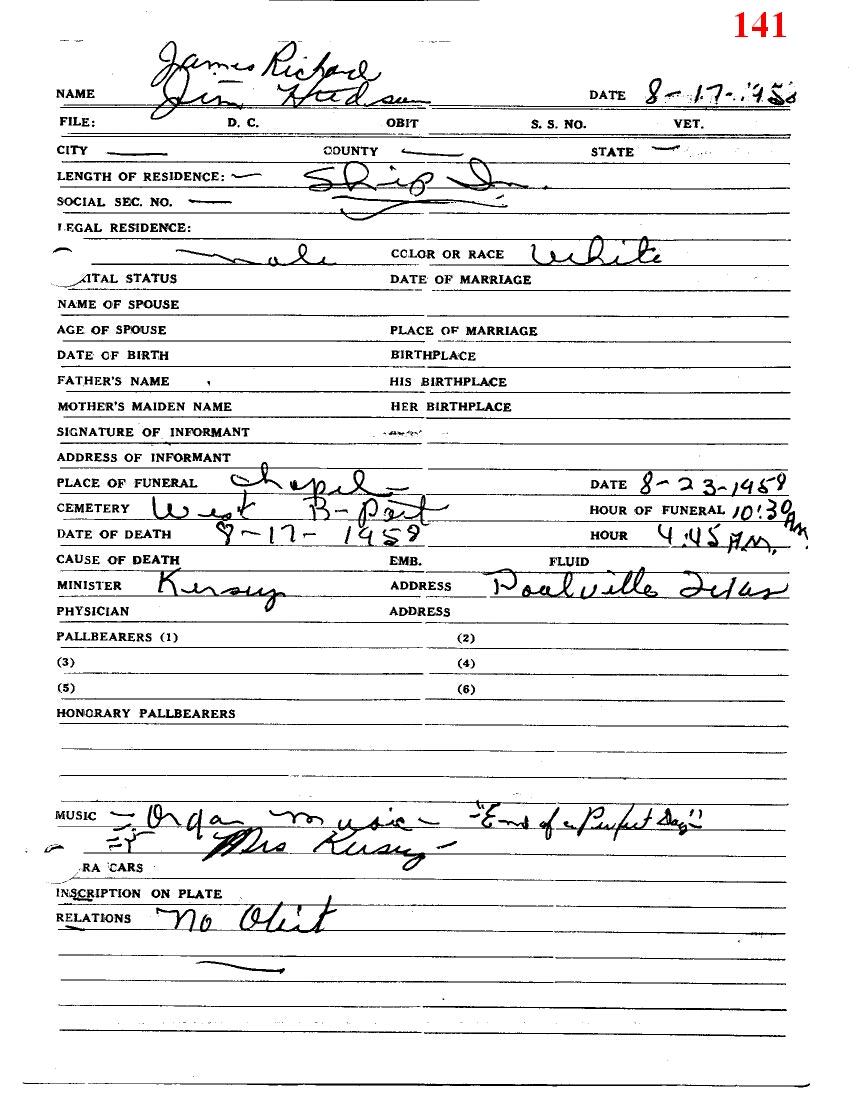 141
James Richard
NAME Jim Hudson DATE 8-17-1958
FILE: D. C. OBIT S. S. NO. VET.
CITY — COUNTY — STATE —
LENGTH OF RESIDENCE: — Ship In.
SOCIAL SEC. NO. —
LEGAL RESIDENCE:
male COLOR OR RACE White
ITAL STATUS DATE OF MARRIAGE
NAME OF SPOUSE
AGE OF SPOUSE PLACE OF MARRIAGE
DATE OF BIRTH BIRTHPLACE
FATHER'S NAME HIS BIRTHPLACE
MOTHER'S MAIDEN NAME HER BIRTHPLACE
SIGNATURE OF INFORMANT
ADDRESS OF INFORMANT
PLACE OF FUNERAL Chapel - DATE 8-23-1958
CEMETERY West B-Port HOUR OF FUNERAL 10:30 AM.
DATE OF DEATH 8-17-1958 HOUR 4:45 AM.
CAUSE OF DEATH EMB. FLUID
MINISTER Kersey ADDRESS Poolville Texas
PHYSICIAN ADDRESS
PALLBEARERS (1) (2)
(3) (4)
(5) (6)
HONORARY PALLBEARERS
MUSIC - Organ music - "End of a Perfect Day"
Mrs Kersey -
RA CARS
INSCRIPTION ON PLATE
RELATIONS No Obit